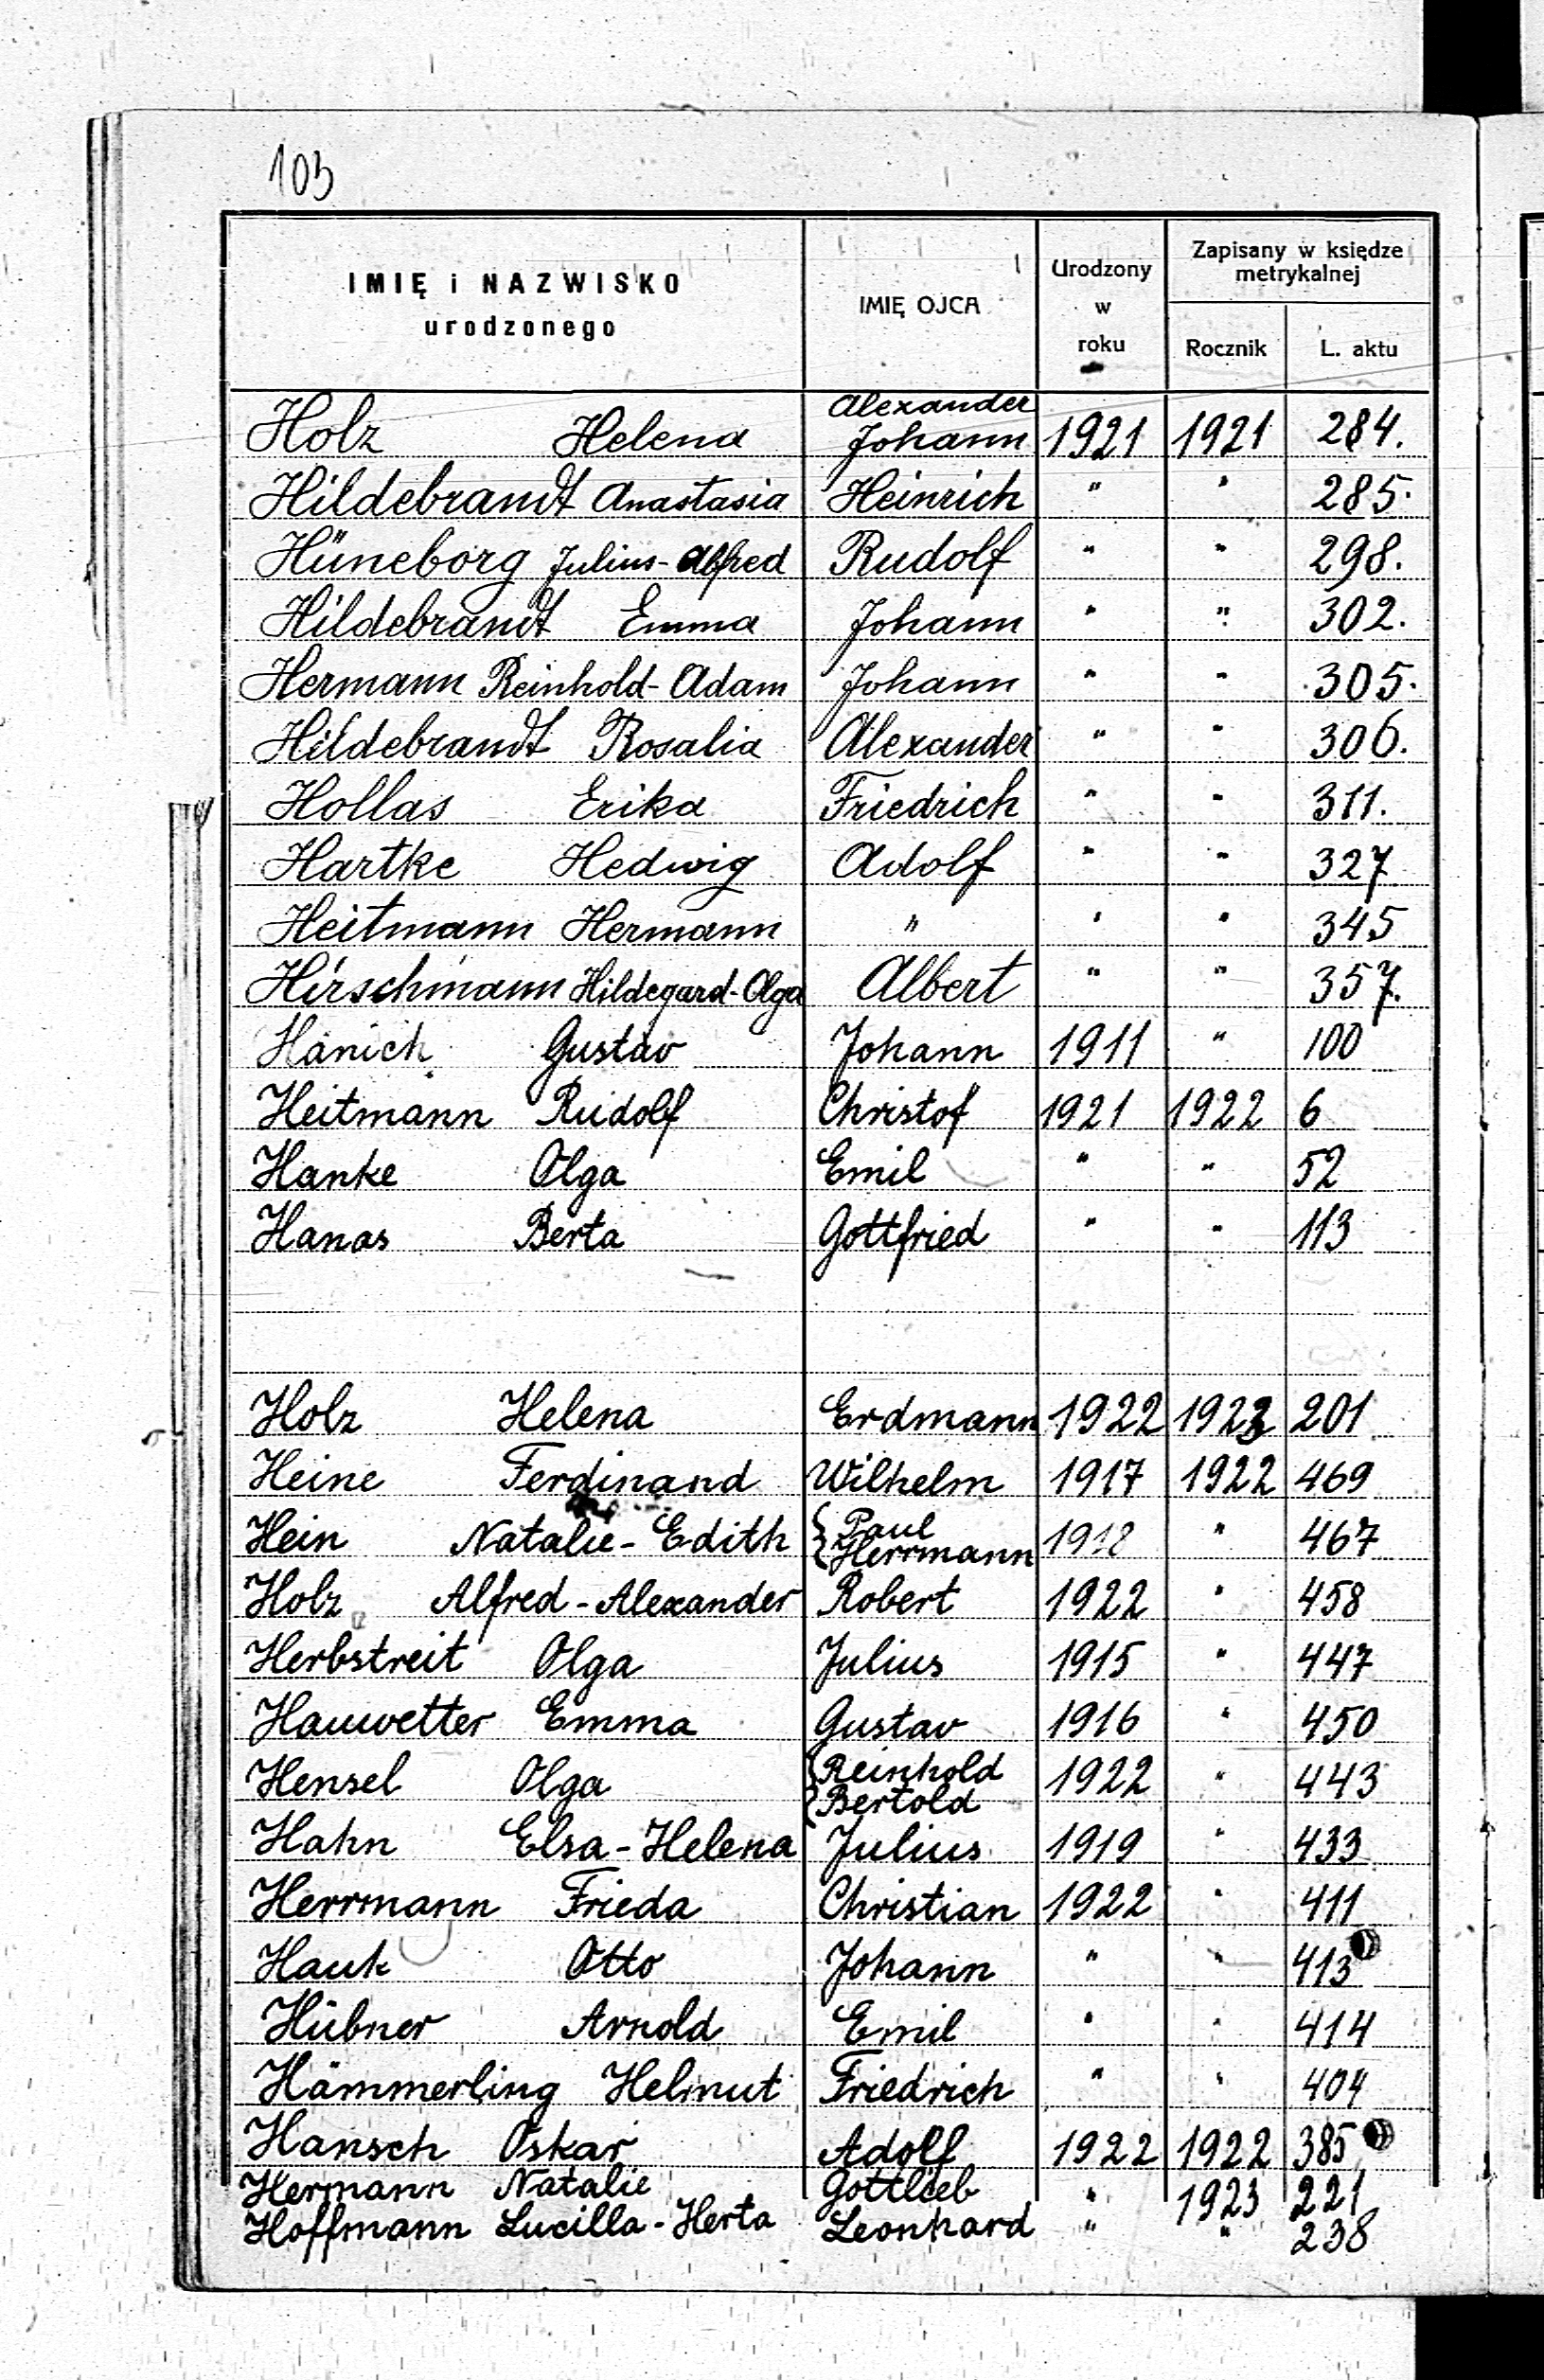 103
IMIĘ i NAZWISKO urodzonego IMIĘ OJCA Urodzony w roku Zapisany w księdze metrykalnej
Rocznik L. aktu
Holz Helena Alexander Johann 1921 1921 284.
Hildebrandt Anastasia Heinrich " " 285.
Hüneborg Julius-Alfred Rudolf " " 298.
Hildebrandt Emma Johann " " 302.
Hermann Reinhold-Adam Johann " " 305.
Hildebrandt Rosalia Alexander " " 306.
Hollas Erika Friedrich " " 311.
Hartke Hedwig Adolf " " 327
Heitmann Hermann " " " 345
Hirschmann Hildegard-Olga Albert " " 357.
Hänich Gustav Johann 1911 " 100
Heitmann Rudolf Christof 1921 1922 6
Hanke Olga Emil " " 52
Hanas Berta Gottfried " " 113
Holz Helena Erdmann 1922 1923 201
Heine Ferdinand Wilhelm 1917 1922 469
Hein Natalie-Edith { Paul Herrmann " 467
Holz Alfred-Alexander Robert 1922 " 458
Herbstreit Olga Julius 1915 " 447
Hauwetter Emma Gustav 1916 " 450
Hensel Olga { Reinhold Bertold 1922 " 443
Hahn Elsa-Helena Julius 1919 " 433
Herrmann Frieda Christian 1922 " 411
Hauk Otto Johann " " 413
Hübner Arnold Emil " " 414
Hämmerling Helmut Friedrich " " 404
Hansch Oskar Adolf 1922 1922 385
Hermann Natalie Gottlieb " 1923 221
Hoffmann Lucilla-Herta Leonhard " " 238